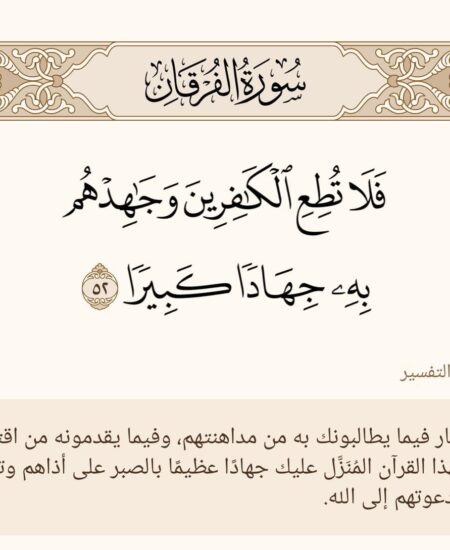 سُورَةُ الفُرْقَانِ
فَلَا تُطِعِ ٱلْكَٰفِرِينَ وَجَٰهِدْهُم
بِهِۦ جِهَادًا كَبِيرًا ٥٢
التفسير
ار فيما يطالبونك به من مداهنتهم، وفيما يقدمونه من اقت
هذا القرآن المُنَزَّل عليك جهادًا عظيمًا بالصبر على أذاهم وت
دعوتهم إلى الله.